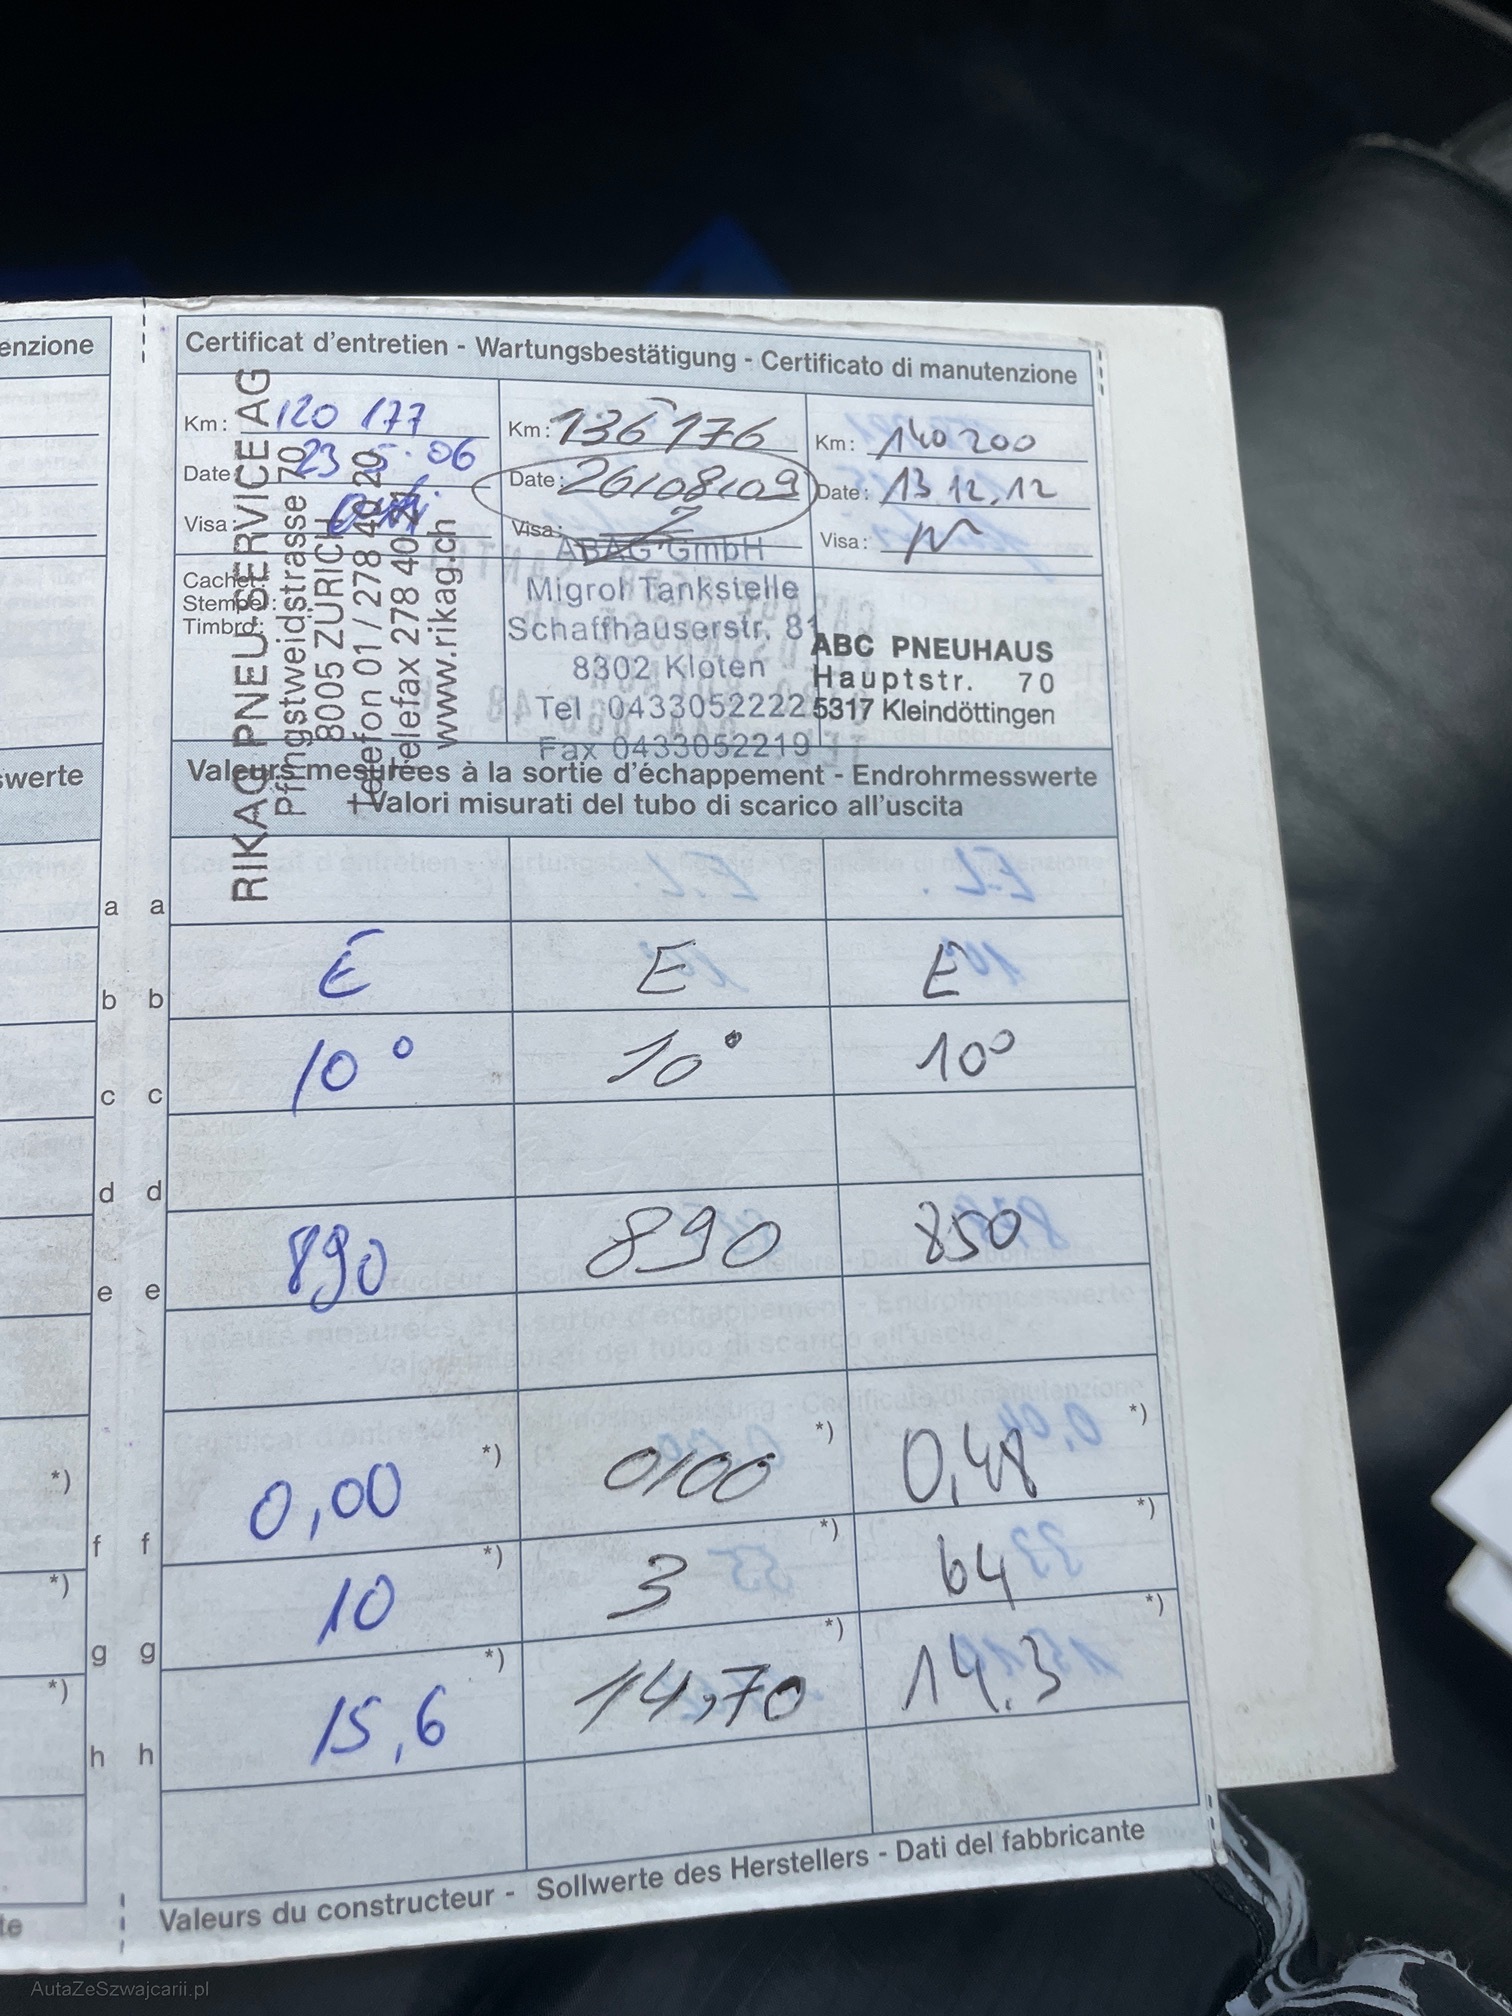 enzione
Certificat d'entretien - Wartungsbestätigung - Certificato di manutenzione
Km: 120 177
Date: 23 5. 06
Visa:
Cachet:
Stempel:
Timbro:
RIKAG PNEU SERVICE AG
Pfingstweidstrasse 70
8005 ZÜRICH
Telefon 01 / 278 40 20
Telefax 278 40 21
www.rikag.ch
Km: 136'176
Date: 26/08/09
Visa:
ABAG GmbH
Migrol Tankstelle
Schaffhauserstr. 81
8302 Kloten
Tel 0433052222
Fax 0433052219
Km: 140 200
Date: 13.12.12
Visa:
ABC PNEUHAUS
Hauptstr. 70
5317 Kleindöttingen
swerte
Valeurs mesurées à la sortie d'échappement - Endrohrmesswerte
Valori misurati del tubo di scarico all'uscita
a a
E E E
b b
10° 10° 10°
c c
d d
890 890 850
e e
*) 0,00 *) 0,00 *) 0,48 *)
f f
*) 10 *) 3 *) 64 *)
g g
*) 15,6 *) 14,70 *) 14.3 *)
h h
te
Valeurs du constructeur - Sollwerte des Herstellers - Dati del fabbricante
AutaZeSzwajcarii.pl